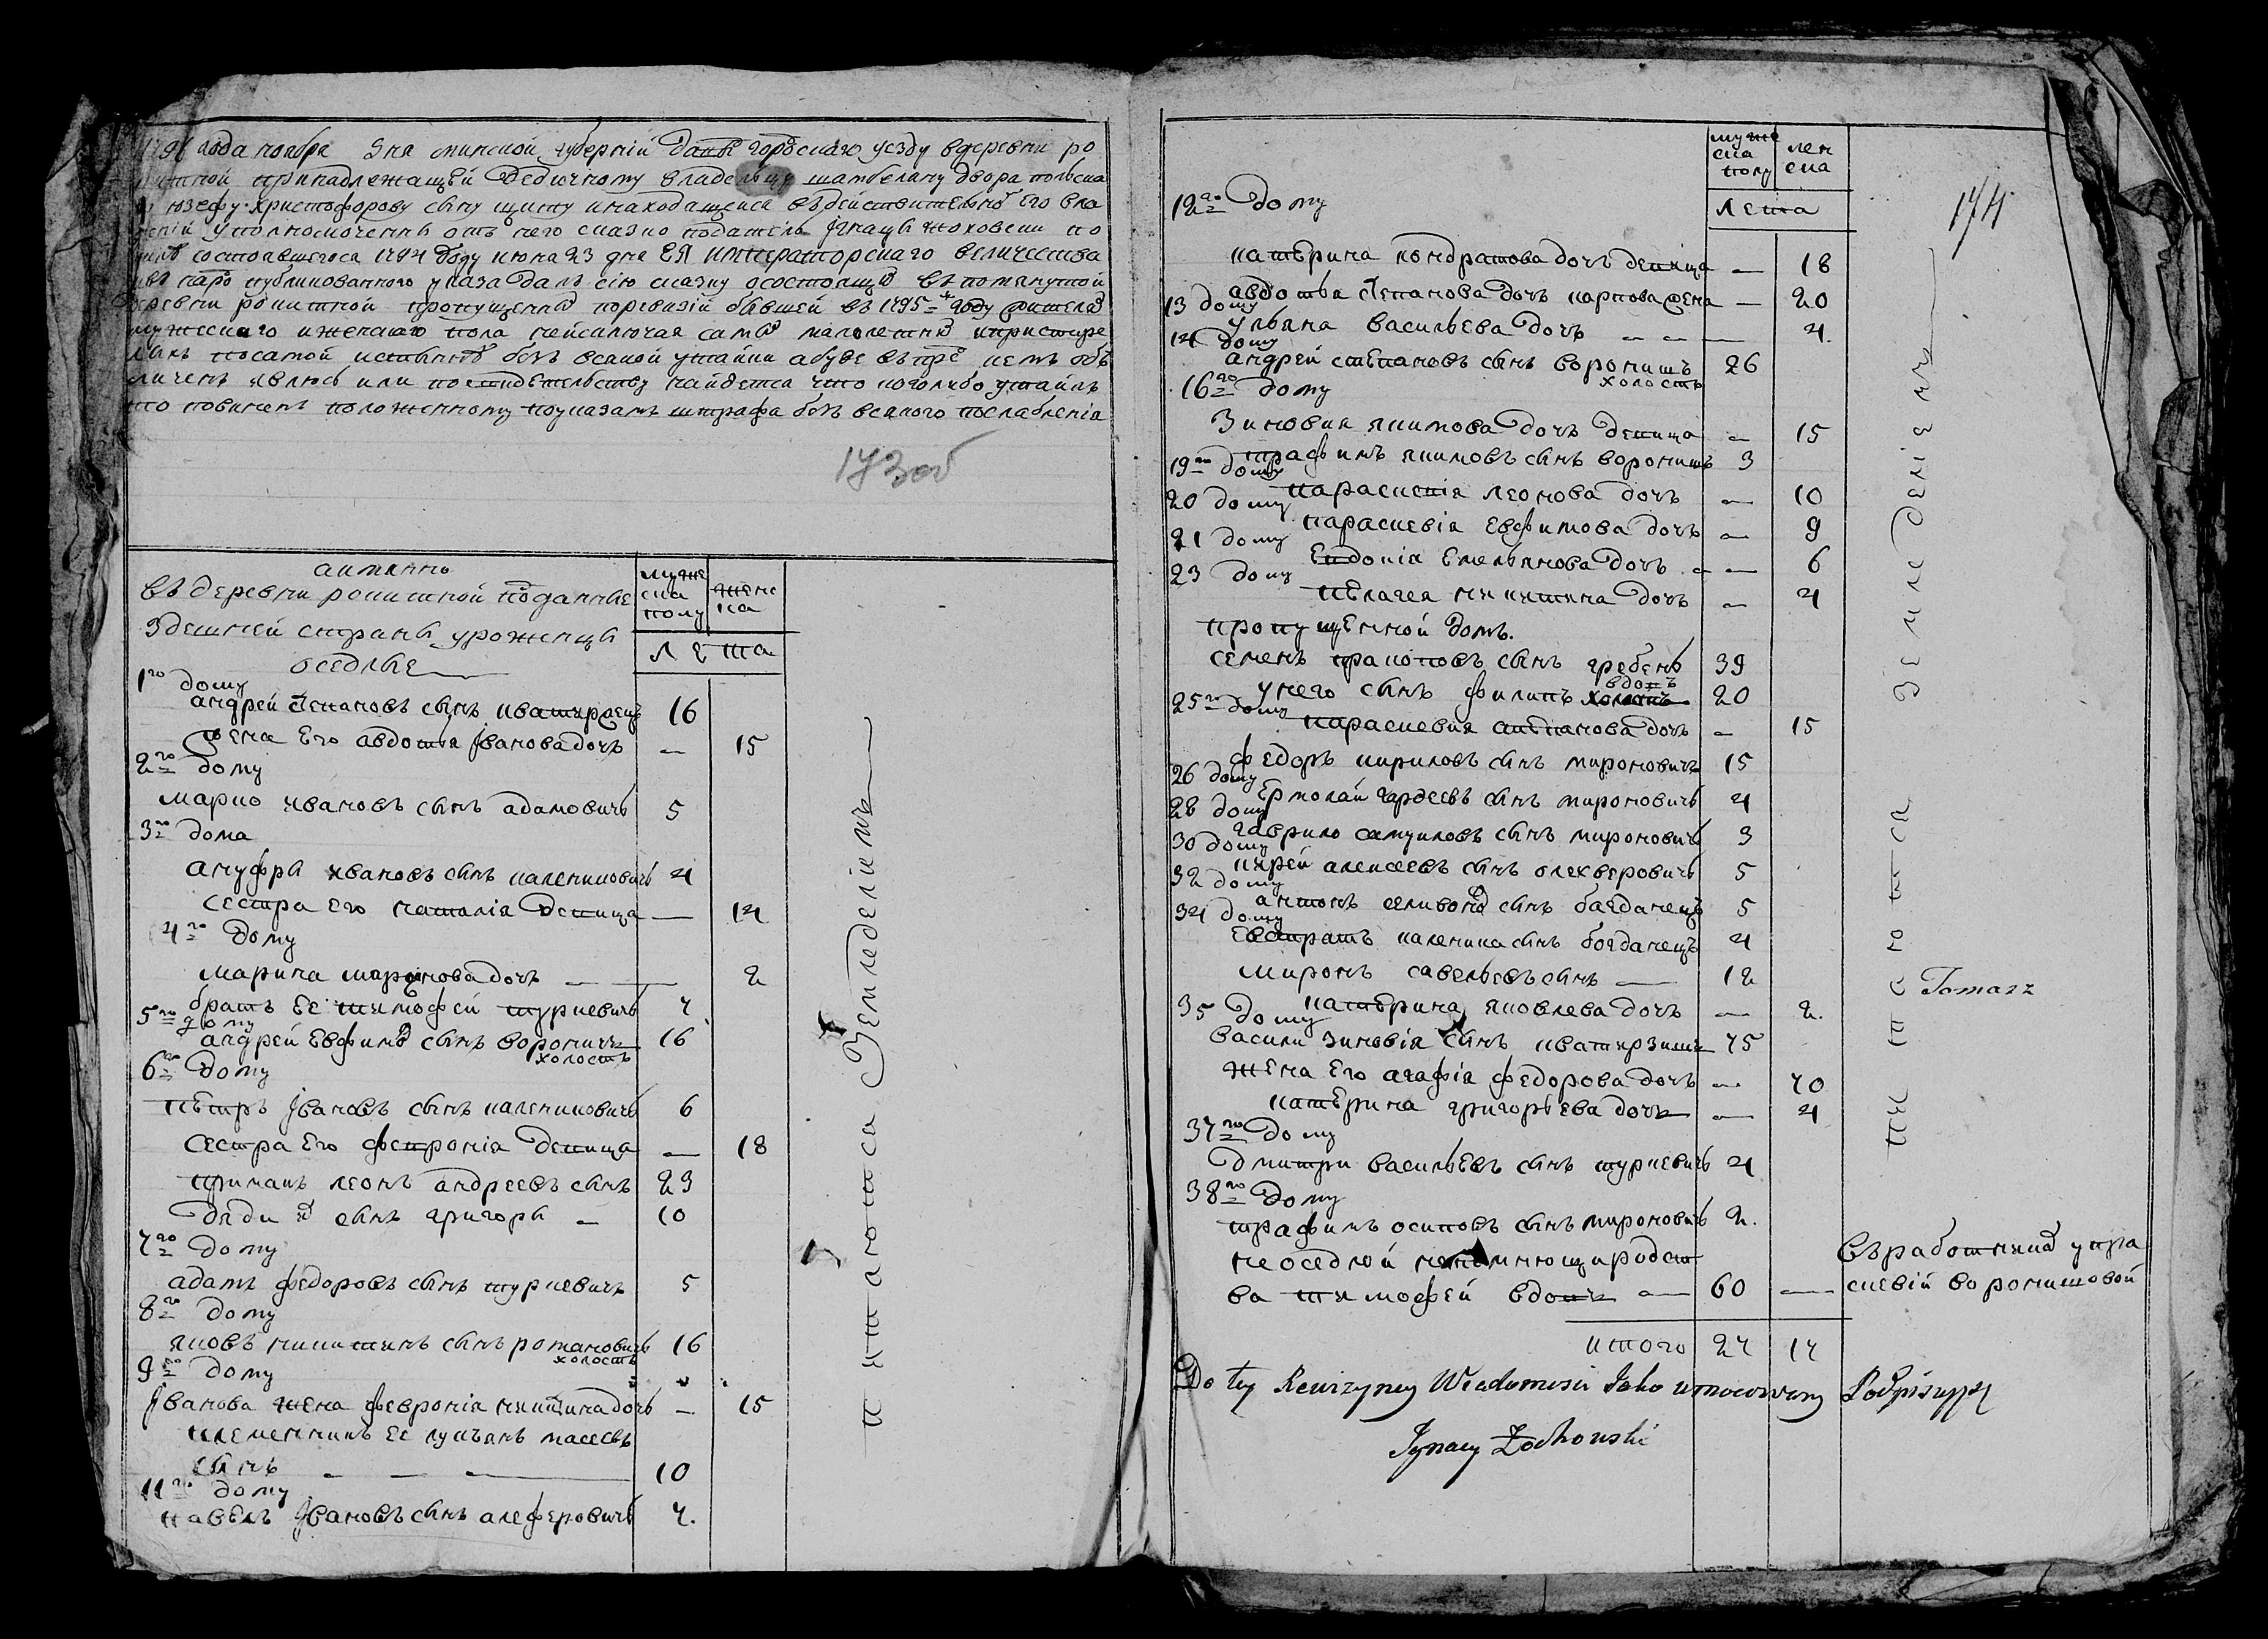 года ноября дня минской губерній Давыгородскаго уезду вдеревни ро
принадлежащей Дедичному владельцу шамбеляну двора польска
юзефу христофорову сыну щиту инаходящейся въдействительно его вла
уполномоченны отъ него сказко податель Jгнацы жоховски по
состоявшегося 1794 году июня 23 дня ЕЯ императорскаго величества
публикованного указа далъ сію сказку осостоящи въпомянутой
деревни рокитной пропущены поревизій бывшей въ 1795 году жителя
мужескаго иженскаго пола неисключая самы малолетны ипристаре
лыхъ посамой истинно безъ всякой утайки абуде въпре кемъ обь
личенъ явлюсь или посвидетельству найдется что коголибо утаилъ
то повиненъ положенному поуказамъ штрафа безъ всякого послабленія
173 об
аимянно
въдеревни рокитной поданные
здешней страны уроженцы
оседлые
муже
ска
полу
женс
ка
Лета
1го дому
андрей степановъ сынъ 16
жена Его авдотья Jвановадочъ — 15
2го дому
марко ивановъ сынъ адамовичъ 5
3го дома
ануфры ивановъ сынъ калениковичъ 4
сестра его наталія девица — 14
4го дому
марина миронова дочъ — 2
братъ Ее тимофей туркевичъ 7
5го дому
андрей Евфимо сынъ вороничъ 16
холостъ
6го дому
петръ Jвановъ сынъ каленикович 6
сестра Его фетронія девица — 18
примакъ леонъ андреевъ сынъ 23
дяди и сынъ григоры — 10
7го дому
адамъ федоровъ сынъ туркевичъ 5
8го дому
яковъ никитинъ сынъ романовичъ 16
холостъ
9го дому
Jванова жена февронія никитинадочъ — 15
племенникъ Ее лукъянъ масеевъ
сынъ — — — 10
11го дому
павелъ Jвановъ сынъ алеферовичъ 7.
питаются Земледеліемъ
муже
ска
полу
жен
ска
лета
174
12го дому
катерина кондратова дочъ девица — 18
авдотья степанова дочъ карпова жена — 20
13 дому
ульяна васильева дочъ — — 4.
14 дому
андрей степановъ сынъ воронишъ 26
холостъ
16го дому
Зиновия якимова дочъ девица — 15
трафимъ якимовъ сынъ воронишъ 3
19го дому
параскевія леонова дочъ — 10
20 дому
параскевія Евфимова дочъ — 9
21 дому
Евдокія Емельянова дочъ — 6
23 дому
пелагея никитина дочъ — 4
пропущенной домъ.
семенъ пракоповъ сынъ гребень 39
вдовъ
унего сынъ филипъ холостъ 20
25го дому
параскевия степанова дочъ — 15
федоръ кириловъ сынъ мироновичъ 15
26 дому
Ермолай гардеевъ сынъ мироновичъ 4
28 дому
гаврило самуиловъ сынъ мироновичъ 3
30 дому
алексеевъ сынъ олехверовичъ 5
32 дому
антонъ селивоно сынъ багданецъ 5
34 дому
Евстратъ каленика сынъ богданецъ 4
миронъ савельевъ сынъ — 12
катерина яковлева дочъ — 2.
35 дому
васили зиновія сынъ 75
жена его агафія федорова дочъ — 70
катерина григорьева дочъ — 4
37го дому
дмитри васильевъ сынъ туркевичъ 4
38го дому
трафимъ осиповъ сынъ мироновичъ 2.
неоседлой неимиющиродст
ва тимофей вдовъ — 60 —
въработника упра
скевій воронишовой
итого 27 17
питаются земледеліемъ
Tomasz
Do tey Rewizyney Wiadomosci Jako umocowany Podpisuję
Jgnacy Żochowski